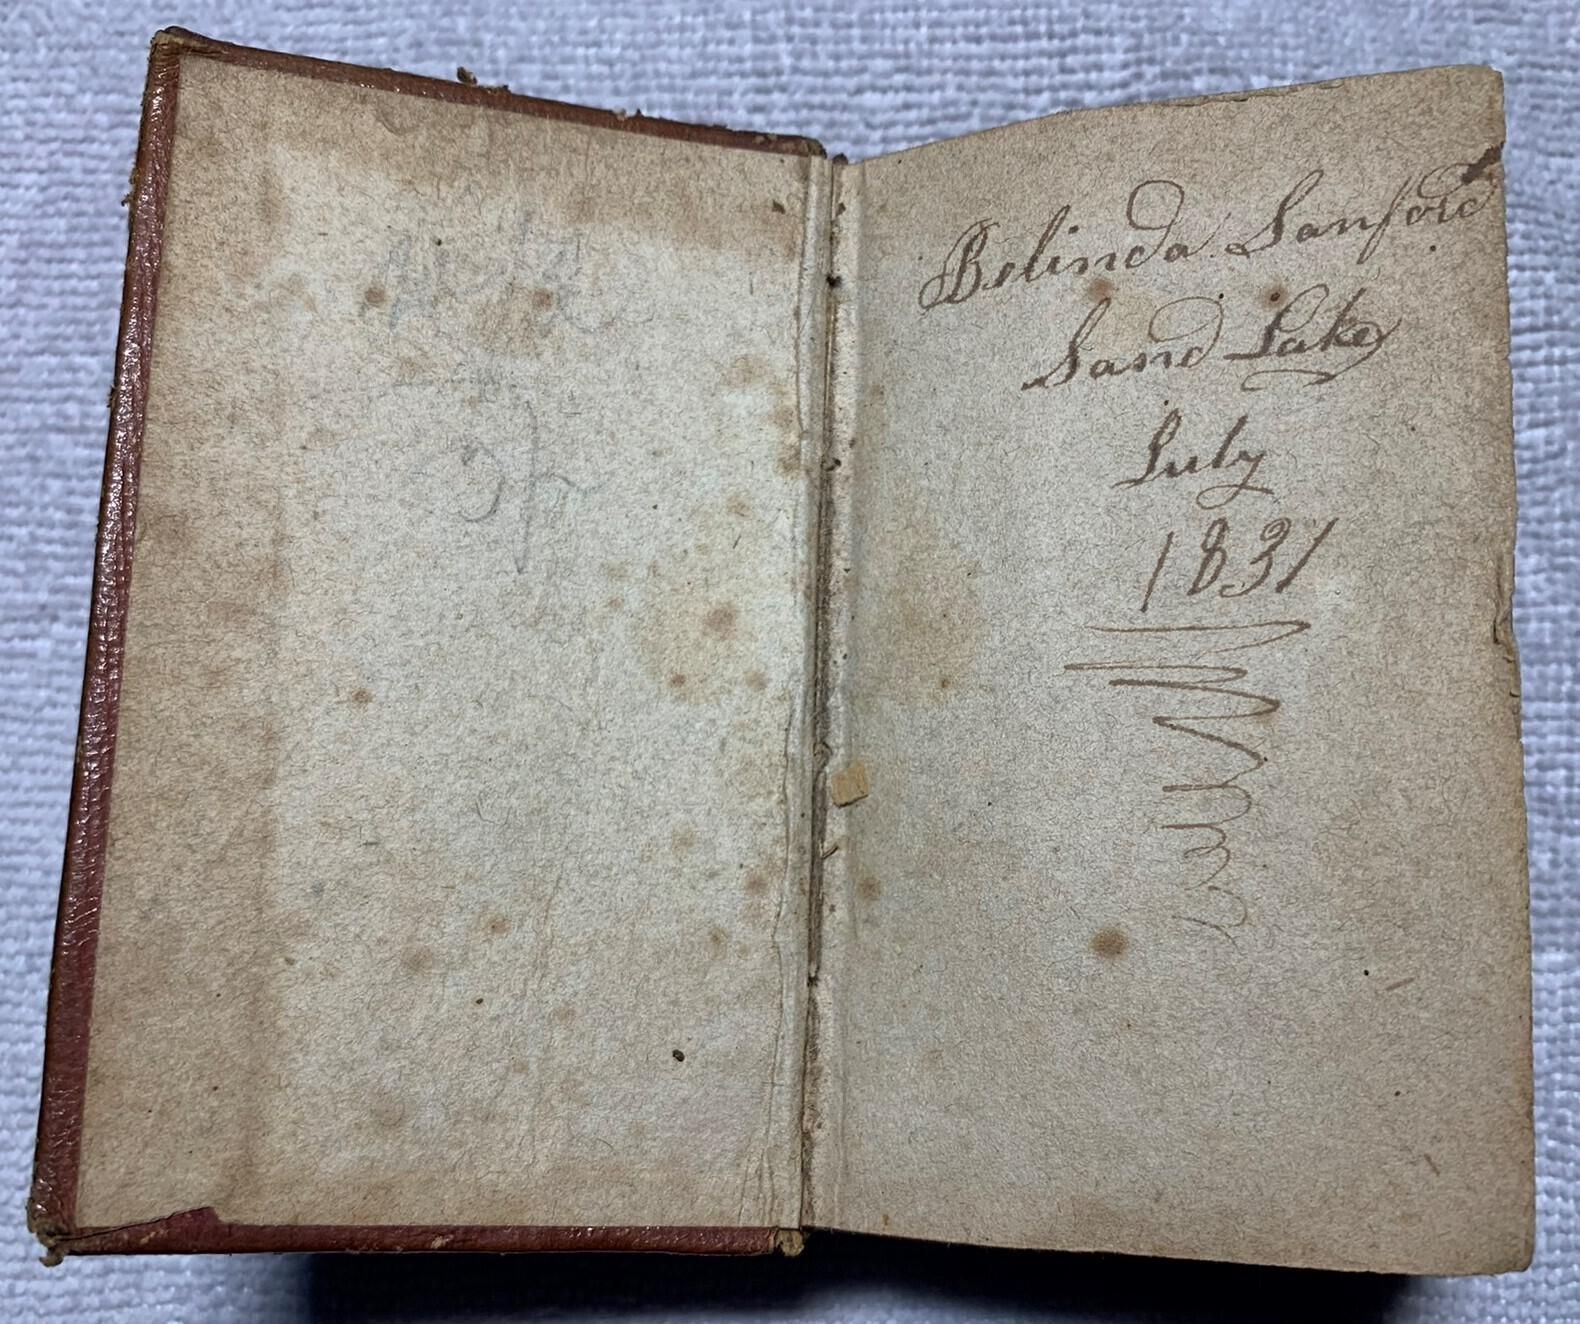 Belinda Sanford
Sand Lake
July
1831